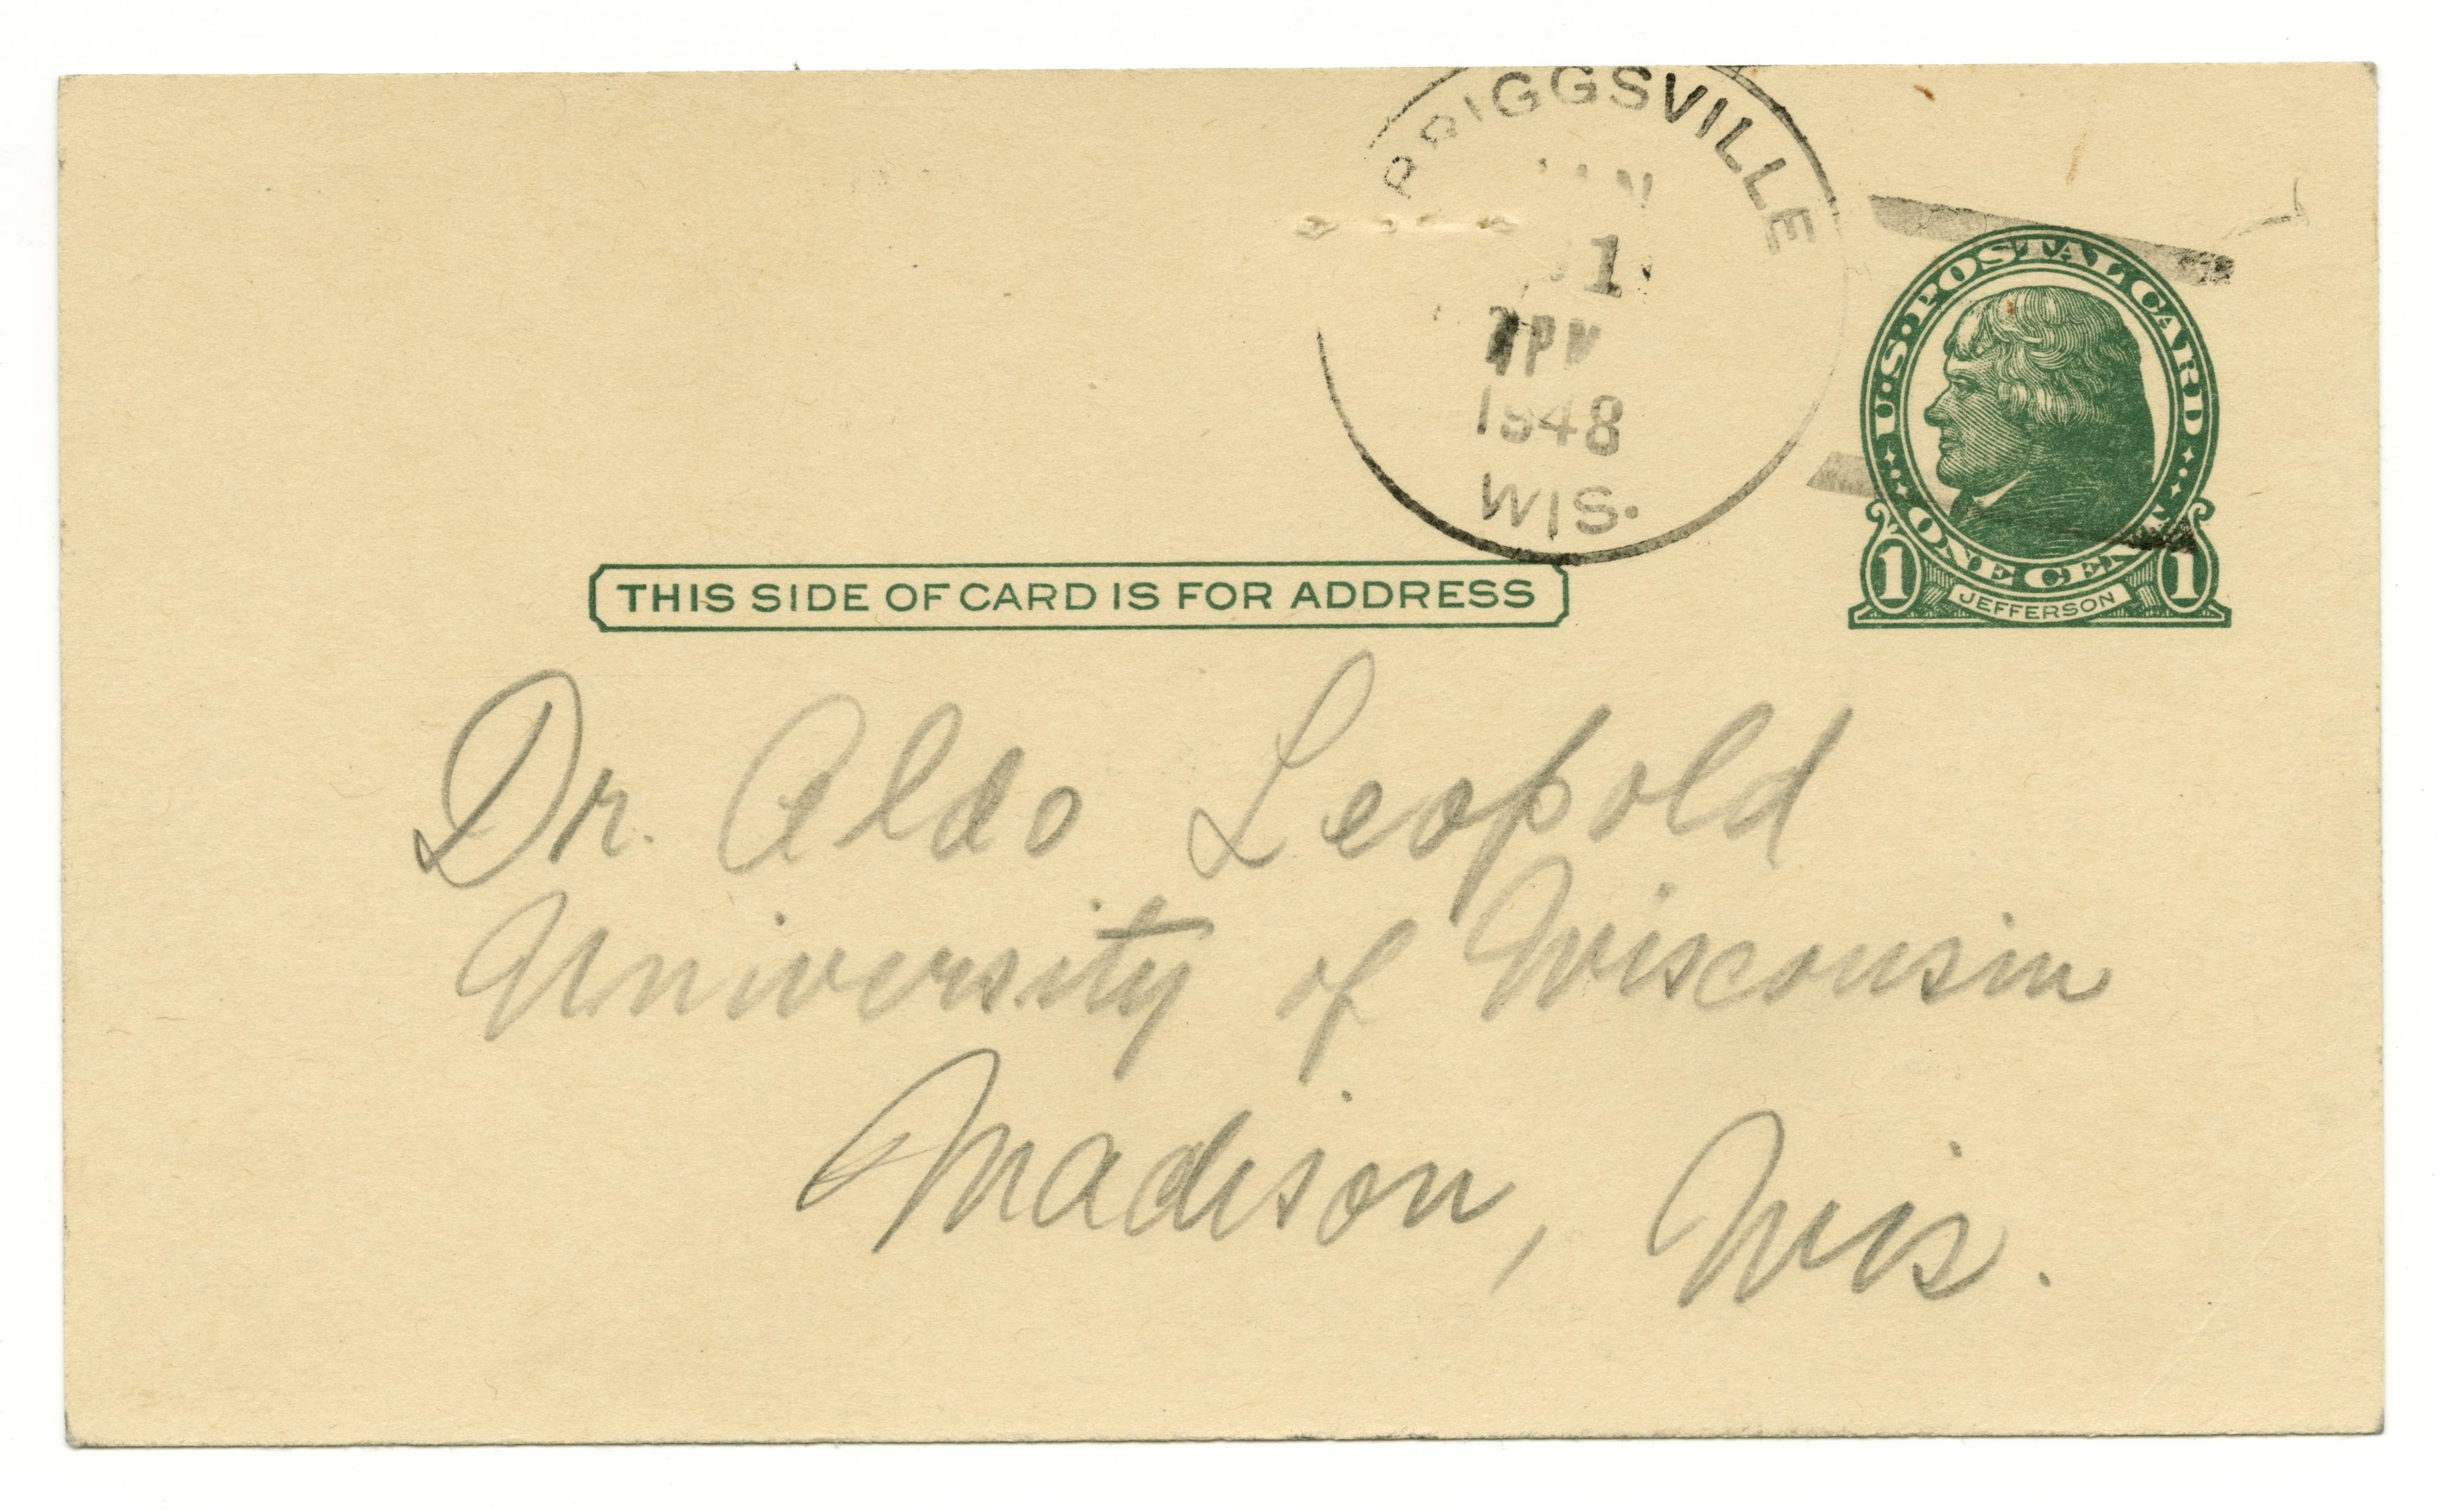 BRIGGSVILLE
JAN
1
PM
1948
WIS.
U·S·POSTAL CARD
ONE CENT
1 JEFFERSON 1
THIS SIDE OF CARD IS FOR ADDRESS
Dr. Aldo Leopold
University of Wisconsin
Madison, Wis.